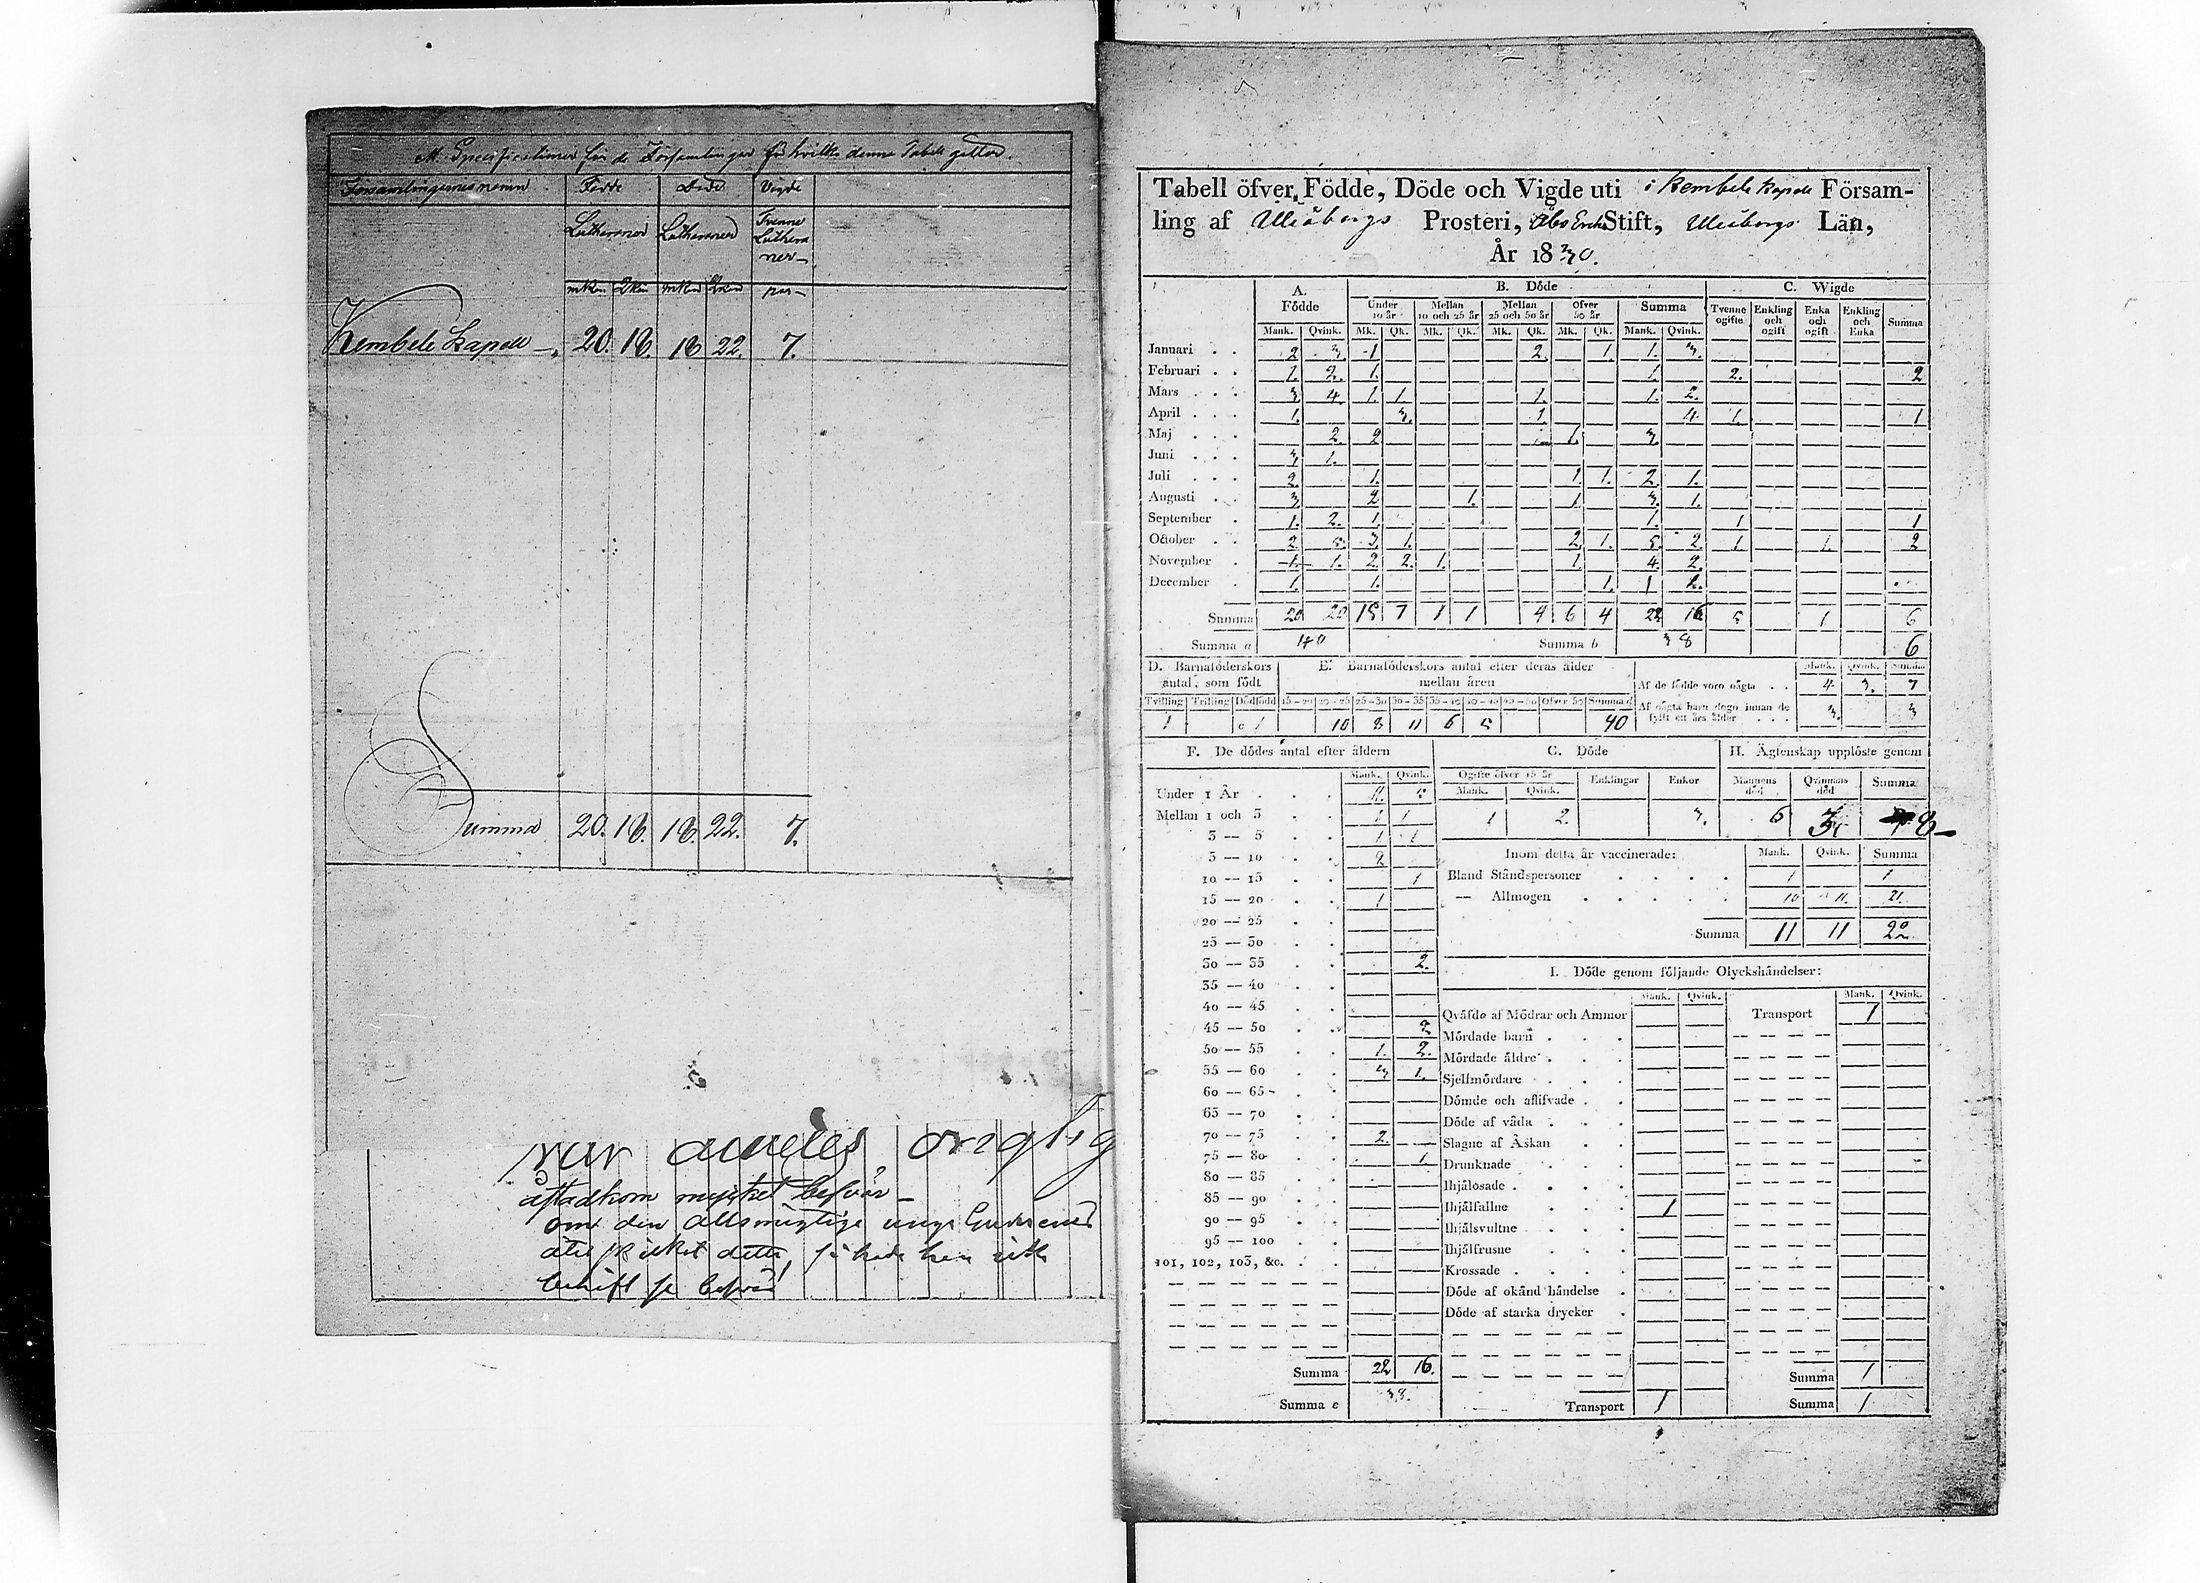 M. Specificationer för de Församlingar för hvilka denna Tabell gäller.
Församlingarnes namn Födde Döde Vigde
Lutheraner Lutheraner Tvenne Luthera ner
mkn Qkn mkn Qkn par
Kembele Kapell 20. 18. 18 22. 7.
Summa 20. 18. 18. 22. 7.
om den allsmägtige
Tabell öfver Födde, Döde och Vigde uti i Kembele Kapell Försam-
ling af Uleåborgs Prosteri, Åbo Erke Stift, Uleåborgs Län,
År 1830.
A. Födde B. Döde C. Wigde
Under 10 år Mellan 10 och 25 år Mellan 25 och 50 år Öfver 50 år Summa Tvenne ogifte Enkling och ogift Enka och ogift Enkling och Enka Summa
Mank. Qvink. Mk. Qk. Mk. Qk. Mk. Qk. Mk. Qk. Mank. Qvink.
Januari 2 3. 1 2. 1. 1. 3.
Februari 1. 2. 1. 1. 2. 2
Mars 3 4. 1. 1. 1. 1. 2.
April 1. 3. 1. 4. 1. 1
Maj 2. 2 1. 3.
Juni 3 1.
Juli 2. 1. 1. 1. 2 1.
Augusti 3 2 1. 1. 3. 1.
September 1. 2. 1. 1. 1 1
October 2. 5. 3. 1. 2. 1. 5. 2. 1. 1. 2
November 1. 1. 2. 2. 1. 1. 4. 2.
December 1. 1. 1. 1 1.
Summa 20 20 15 7 1 1 4 6 4 22 16 5 1 6
Summa a 40 Summa b 38 6
D. Barnaföderskors antal, som födt E. Barnaföderskors antal efter deras ålder mellan åren Mank. Qvink. Summa
Af de födde voro oägta 4. 3. 7
Tvilling Trilling Dödfödd 15-20 20-25 25-30 30-35 35-40 40-45 45-50 Öfver 50 Summa d
Af oägta barn dogo innan de fyllt ett års ålder 3. 3
1 c 1 10 8 11 6 5 40
F. De dödes antal efter åldern G. Döde H. Ägtenskap upplöste genom
Mank. Qvink. Ogifte öfver 15 år Enklingar Enkor Mannens död Qvinnans död Summa
Mank. Qvink.
Under 1 År 5
Mellan 1 och 3 1 1 1 2. 3. 6 3. 8
3 — 5 1 1
5 — 10 2 Inom detta år vaccinerade: Mank. Qvink. Summa
10 — 15 1 Bland Ståndspersoner 1 1
15 — 20 1 — Allmogen 10 11. 21.
20 — 25
25 — 30 Summa 11 11 22
30 — 35 2.
35 — 40 I. Döde genom följande Olyckshändelser:
40 — 45 Mank. Qvink. Mank. Qvink.
Qväfde af Mödrar och Ammor Transport 1
45 — 50 2 Mördade barn
50 — 55 1. 2. Mördade äldre
55 — 60 3 1. Sjelfmördare
60 — 65 Dömde och aflifvade
65 — 70 Döde af våda
70 — 75 2. Slagne af Åskan
75 — 80 1. Drunknade
80 — 85 Ihjälosade
85 — 90 Ihjälfallne 1
90 — 95 Ihjälsvultne
95 — 100 Ihjälfrusne
101, 102, 103, &c. Krossade
Döde af okänd händelse
Döde af starka drycker
Summa 22 16. Summa 1
Summa e 38. Transport 1 Summa 1